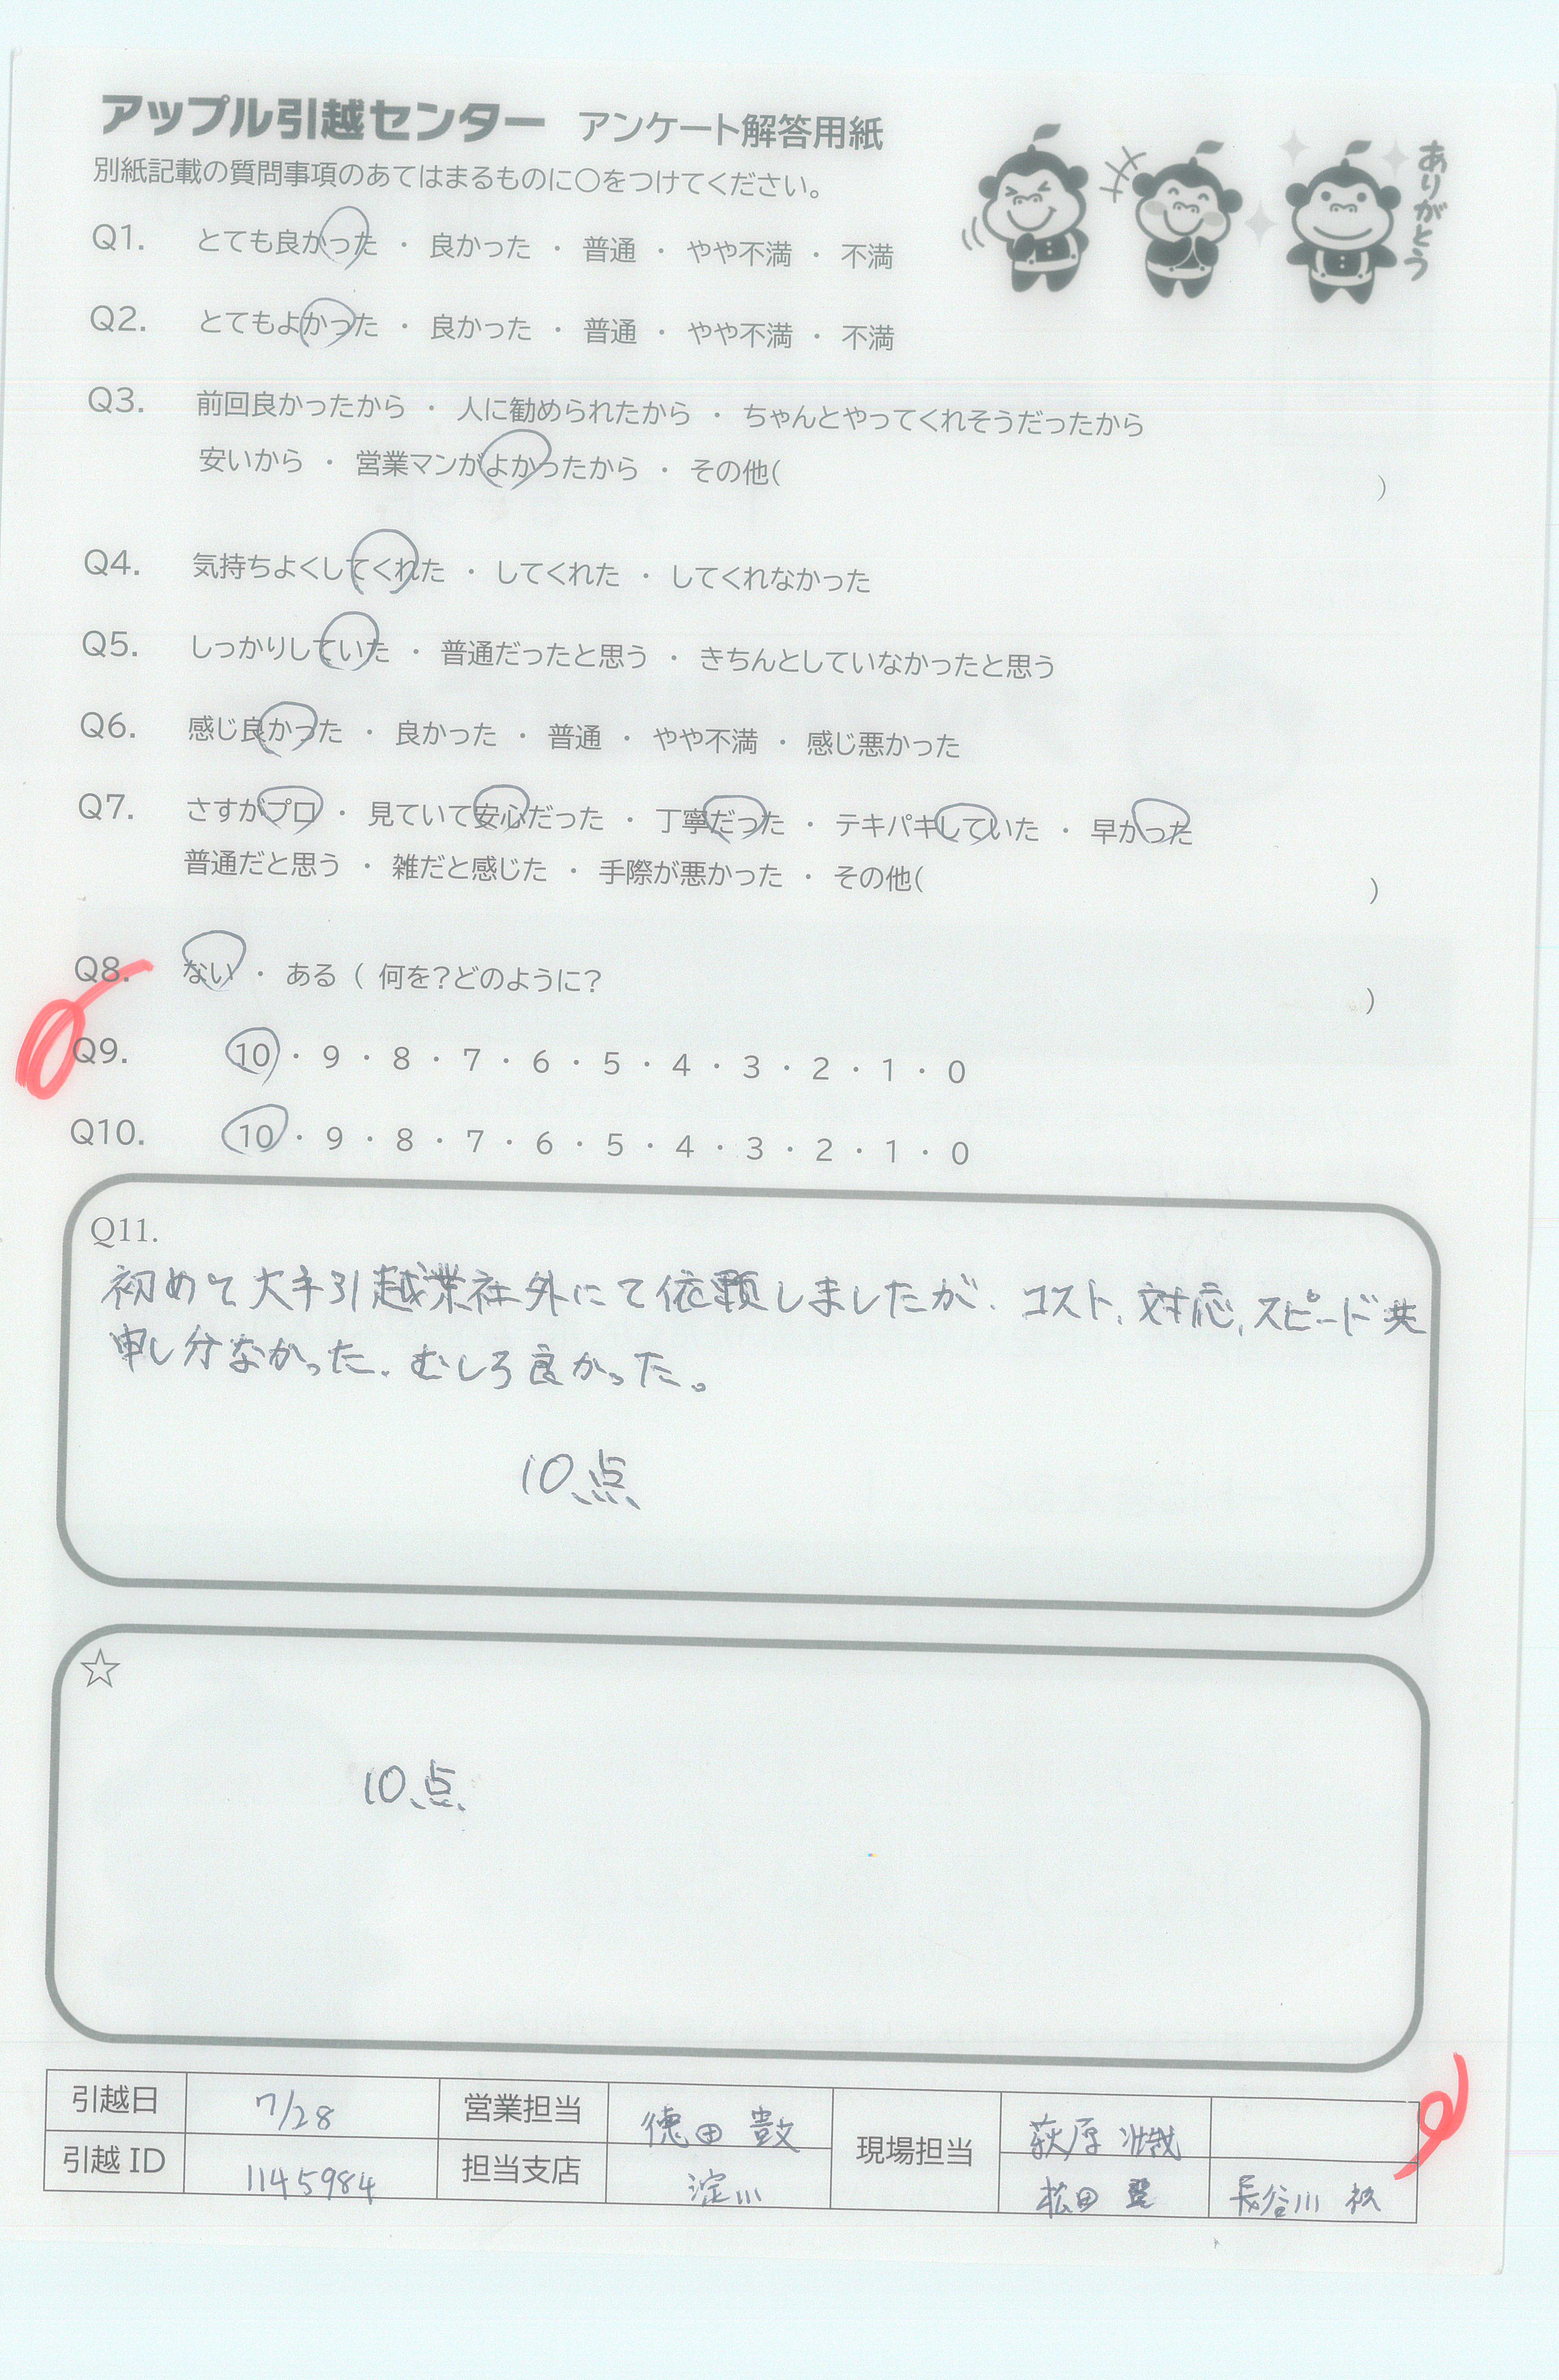 アップル引越センター アンケート解答用紙
別紙記載の質問事項のあてはまるものに○をつけてください。
ありがとう
Q1. とても良かった ・ 良かった ・ 普通 ・ やや不満 ・ 不満
Q2. とてもよかった ・ 良かった ・ 普通 ・ やや不満 ・ 不満
Q3. 前回良かったから ・ 人に勧められたから ・ ちゃんとやってくれそうだったから
安いから ・ 営業マンがよかったから ・ その他( )
Q4. 気持ちよくしてくれた ・ してくれた ・ してくれなかった
Q5. しっかりしていた ・ 普通だったと思う ・ きちんとしていなかったと思う
Q6. 感じ良かった ・ 良かった ・ 普通 ・ やや不満 ・ 感じ悪かった
Q7. さすがプロ ・ 見ていて安心だった ・ 丁寧だった ・ テキパキしていた ・ 早かった
普通だと思う ・ 雑だと感じた ・ 手際が悪かった ・ その他( )
Q8. ない ・ ある ( 何を?どのように? )
Q9. 10 ・ 9 ・ 8 ・ 7 ・ 6 ・ 5 ・ 4 ・ 3 ・ 2 ・ 1 ・ 0
Q10. 10 ・ 9 ・ 8 ・ 7 ・ 6 ・ 5 ・ 4 ・ 3 ・ 2 ・ 1 ・ 0
Q11.
初めて大手引越業社外にて依頼しましたが、コスト、対応、スピード共
申し分なかった。むしろ良かった。
10点
☆
10点
引越日 7/28 営業担当 徳田 現場担当 萩原
引越 ID 1145984 担当支店 淀川 松田 長谷川